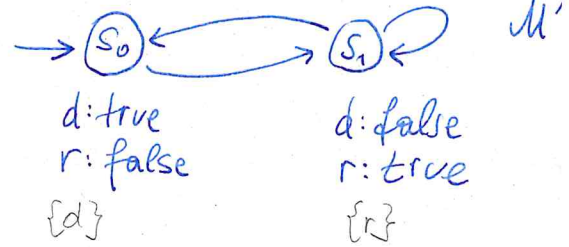 S₀ S₁ M'
d:true d:false
r:false r:true
{d} {r}